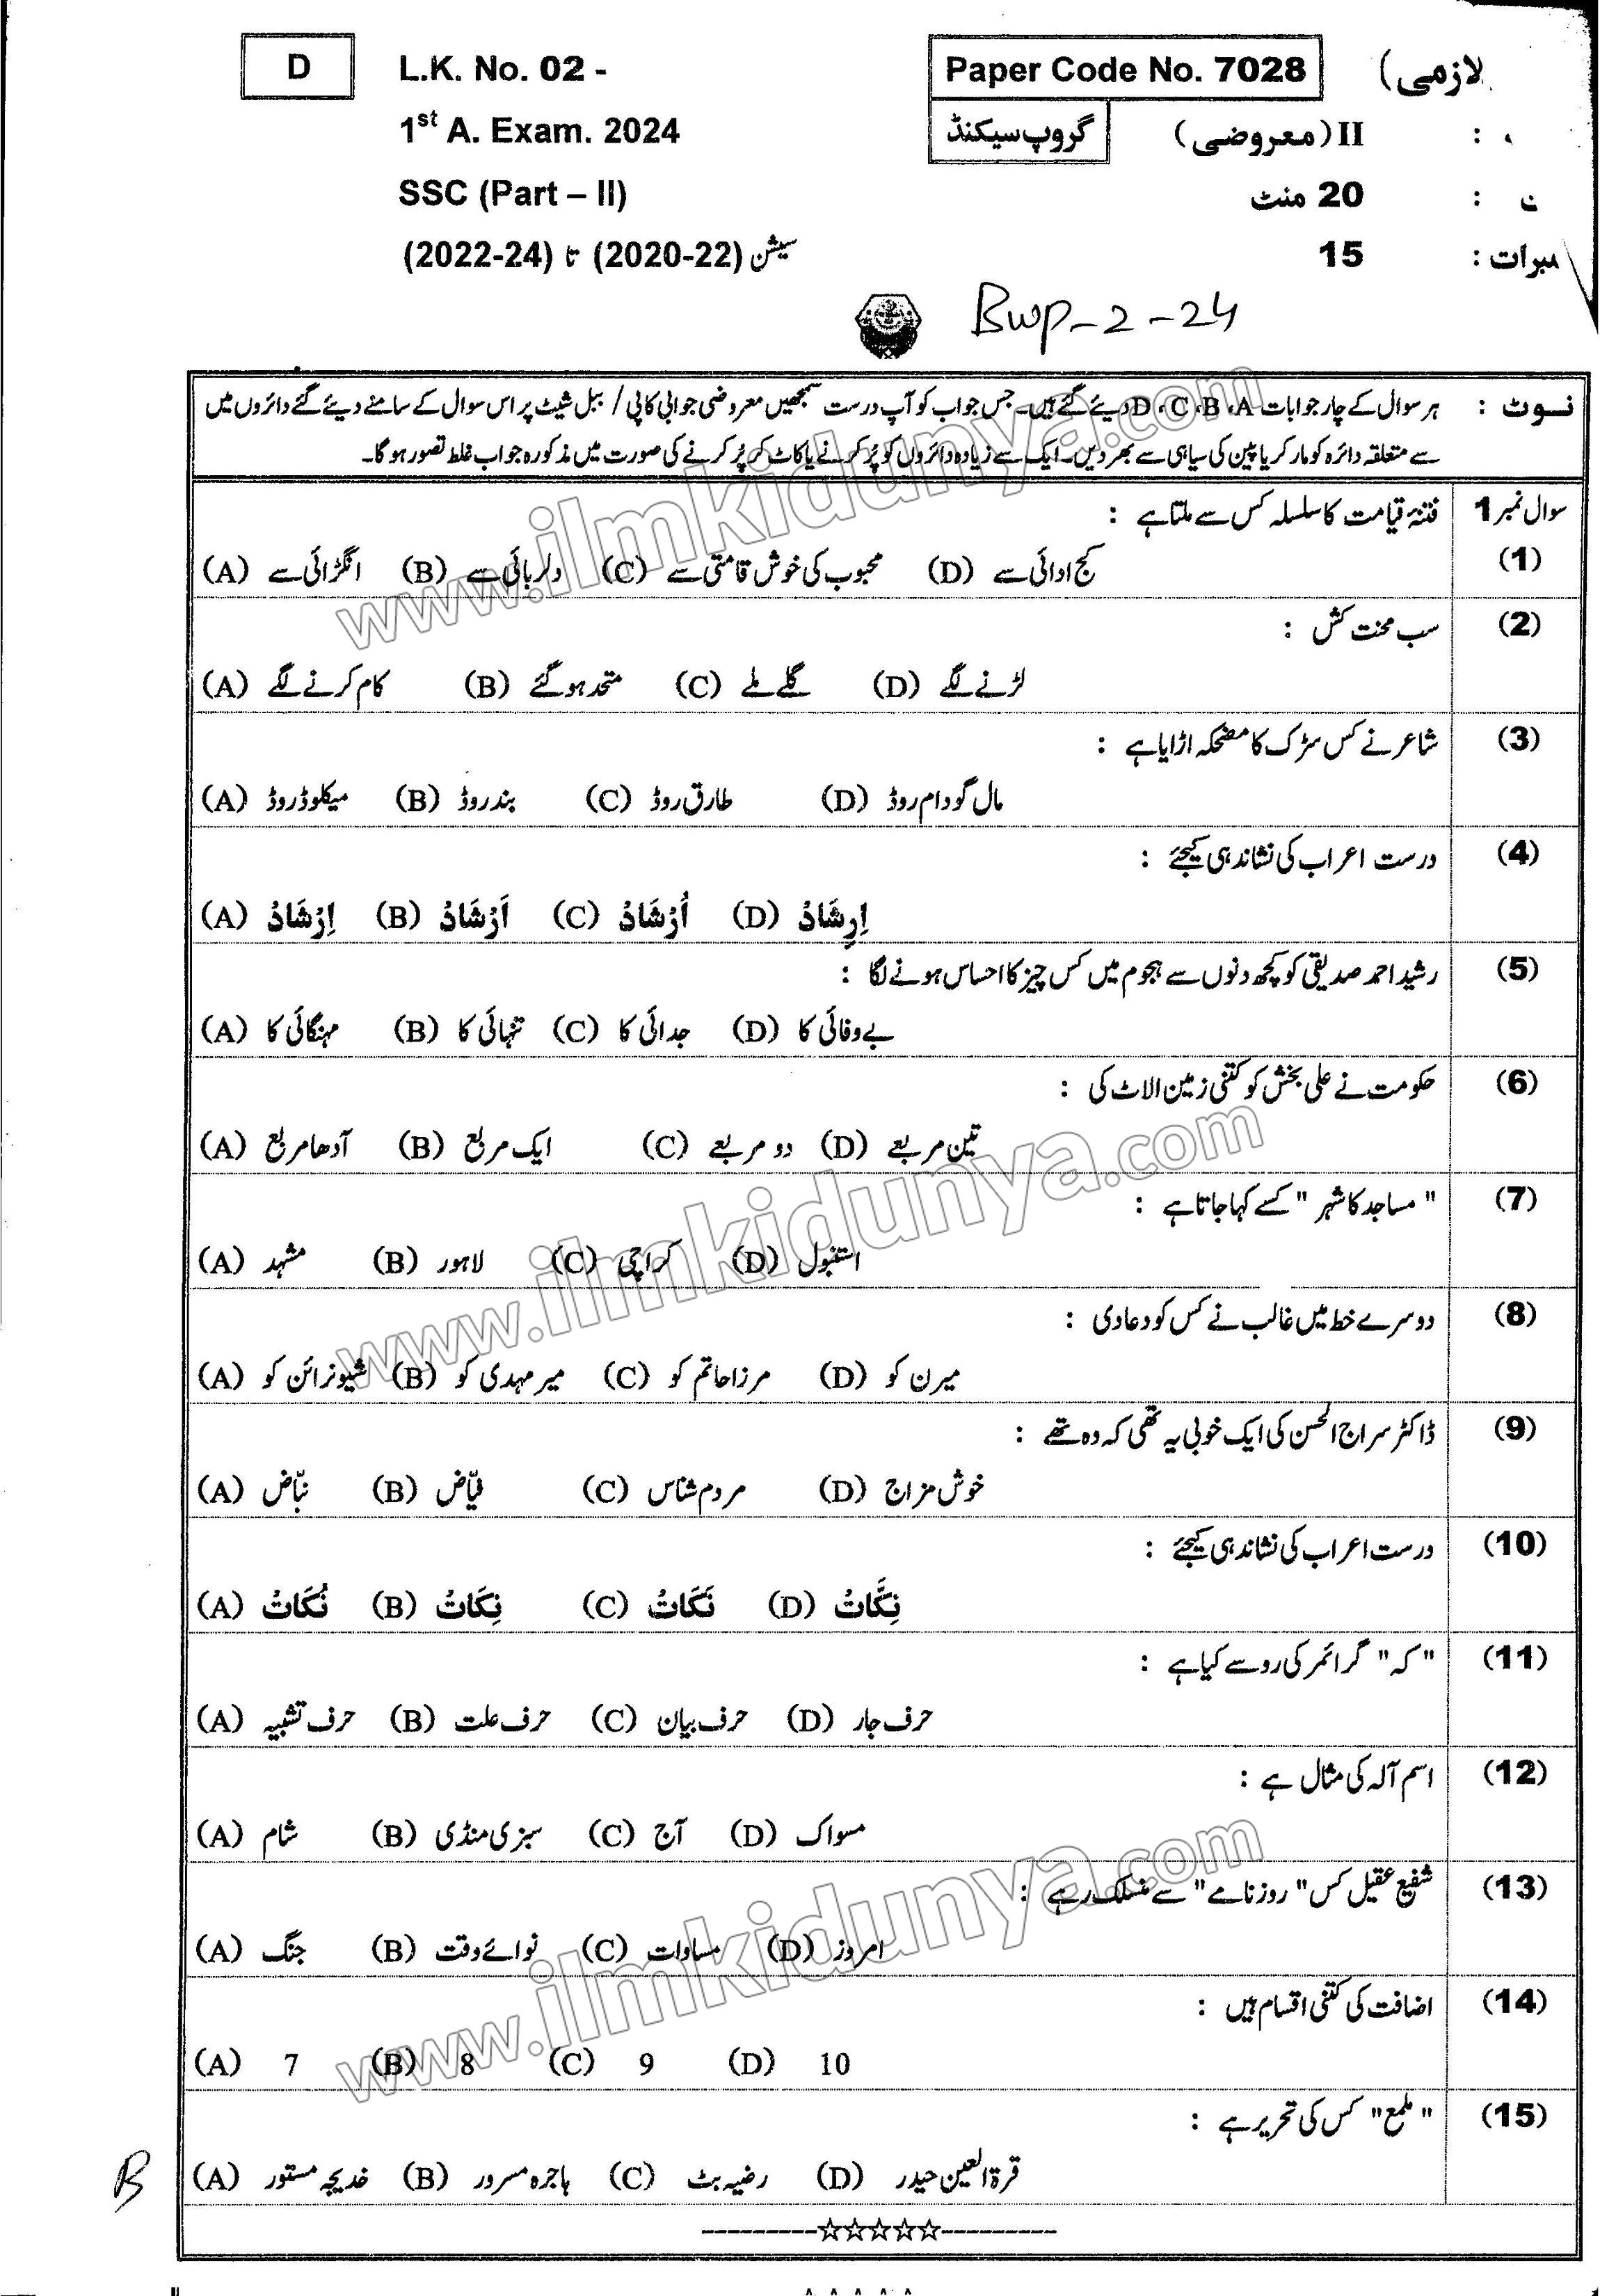 D L.K. No. 02 - Paper Code No. 7028 لازمی)
1st A. Exam. 2024 گروپ سیکنڈ II (معروضی) :
SSC (Part – II) 20 منٹ :
سیشن (2020-22) تا (2022-24) 15 :
Bwp-2-24
نوٹ : ہر سوال کے چار جوابات A، B، C، D دیئے گئے ہیں۔ جس جواب کو آپ درست سمجھیں معروضی جوابی کاپی / ببل شیٹ پر اس سوال کے سامنے دیئے گئے دائروں میں
سے متعلقہ دائرہ کو مارکر یا پین کی سیاہی سے بھر دیں۔ ایک سے زیادہ دائروں کو پُر کرنے یا کاٹ کر پُر کرنے کی صورت میں مذکورہ جواب غلط تصور ہوگا۔
سوال نمبر 1 فتنۂ قیامت کا سلسلہ کس سے ملتا ہے :
(1) (A) انگڑائی سے (B) دلربائی سے (C) محبوب کی خوش قامتی سے (D) کج ادائی سے
(2) سب محنت کش :
(A) کام کرنے لگے (B) متحد ہو گئے (C) گلے ملے (D) لڑنے لگے
(3) شاعر نے کس سڑک کا مضحکہ اڑایا ہے :
(A) میکلوڈ روڈ (B) بندر روڈ (C) طارق روڈ (D) مال گودام روڈ
(4) درست اعراب کی نشاندہی کیجئے :
(A) اِرْشَادْ (B) اَرْشَادْ (C) اُرْشَادْ (D) اِرِشَادْ
(5) رشید احمد صدیقی کو کچھ دنوں سے ہجوم میں کس چیز کا احساس ہونے لگا :
(A) مہنگائی کا (B) تنہائی کا (C) جدائی کا (D) بے وفائی کا
(6) حکومت نے علی بخش کو کتنی زمین الاٹ کی :
(A) آدھا مربع (B) ایک مربع (C) دو مربعے (D) تین مربعے
(7) "مساجد کا شہر" کسے کہا جاتا ہے :
(A) مشہد (B) لاہور (C) کراچی (D) استنبول
(8) دوسرے خط میں غالب نے کس کو دعا دی :
(A) شیونرائن کو (B) میر مہدی کو (C) مرزا حاتم کو (D) میرن کو
(9) ڈاکٹر سراج الحسن کی ایک خوبی یہ تھی کہ وہ تھے :
(A) نبّاض (B) فیّاض (C) مردم شناس (D) خوش مزاج
(10) درست اعراب کی نشاندہی کیجئے :
(A) نُکَاتْ (B) نِکَاتْ (C) نَکَاتْ (D) نِکَّاتْ
(11) "کہ" گرائمر کی رو سے کیا ہے :
(A) حرف تشبیہ (B) حرف علت (C) حرف بیان (D) حرف جار
(12) اسم آلہ کی مثال ہے :
(A) شام (B) سبزی منڈی (C) آج (D) مسواک
(13) شفیع عقیل کس "روزنامے" سے منسلک رہے :
(A) جنگ (B) نوائے وقت (C) مساوات (D) امروز
(14) اضافت کی کتنی اقسام ہیں :
(A) 7 (B) 8 (C) 9 (D) 10
(15) "ملمع" کس کی تحریر ہے :
(A) خدیجہ مستور (B) ہاجرہ مسرور (C) رضیہ بٹ (D) قرۃ العین حیدر
B
www.ilmkidunya.com
www.ilmkidunya.com
www.ilmkidunya.com